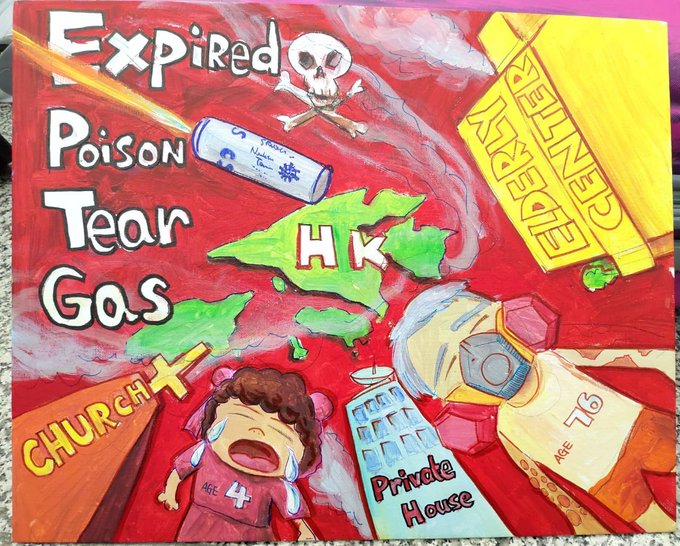 Expired
Poison
Tear
Gas
ELDERLY
CENTER
HK
CHURCH
AGE 4
Private
House
AGE 76